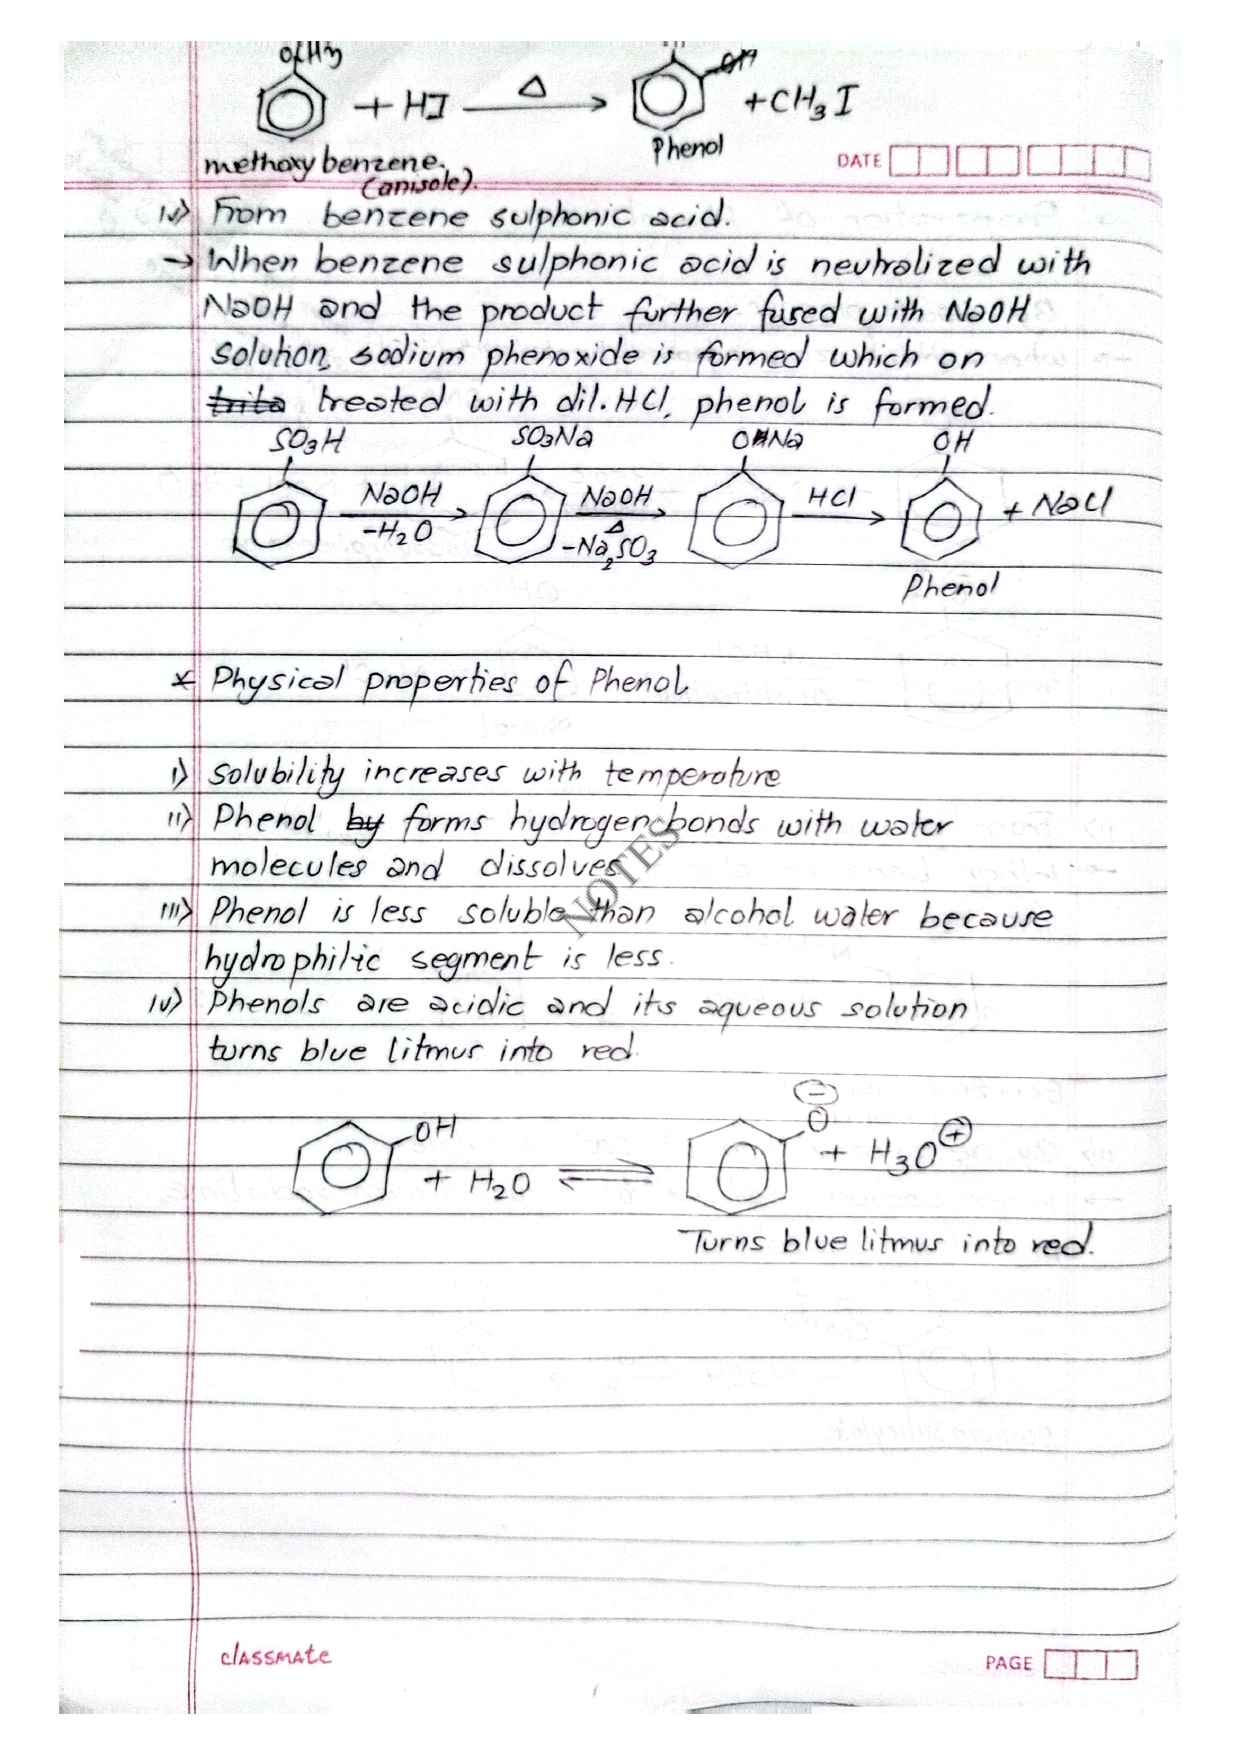 OCH3
+ HI Δ + CH3I
methoxy benzene. Phenol
(anisole).
DATE
iv) From benzene sulphonic acid.
→ When benzene sulphonic acid is neutralized with
NaOH and the product further fused with NaOH
solution, sodium phenoxide is formed which on
treated with dil. HCl, phenol is formed.
SO3H SO3Na ONa OH
NaOH NaOH HCl + NaCl
-H2O Δ
-Na2SO3
Phenol
* Physical properties of Phenol
i) Solubility increases with temperature
ii) Phenol by forms hydrogen bonds with water
molecules and dissolves.
iii) Phenol is less soluble than alcohol water because
hydrophilic segment is less.
iv) Phenols are acidic and its aqueous solution
turns blue litmus into red.
OH + H2O ⇌ O⊖ + H3O⊕
Turns blue litmus into red.
NOTES
classmate
PAGE